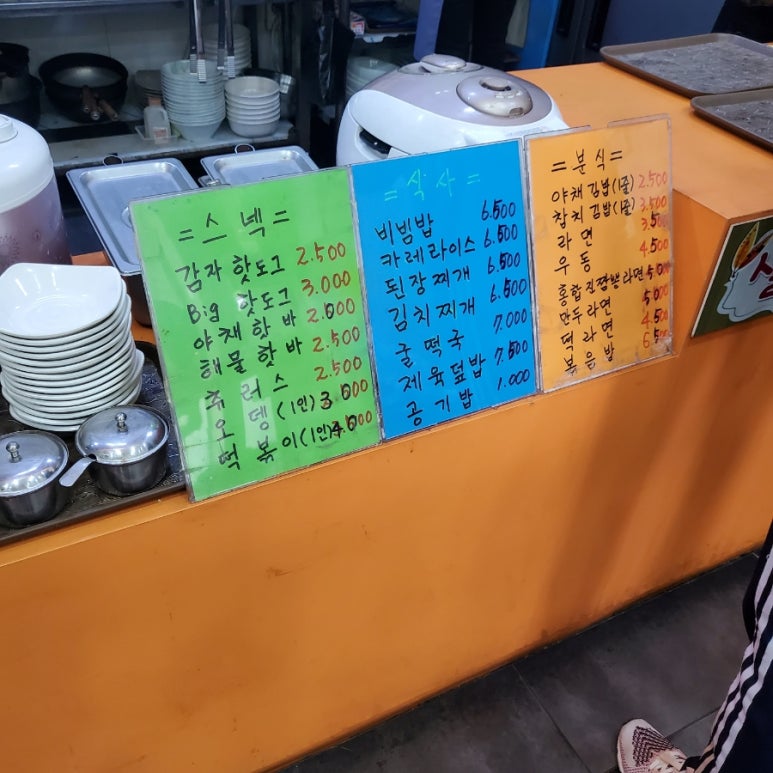 =스넥=
감자 핫도그 2.500
Big 핫도그 3.000
야채핫 바
해물핫 바 2.500
츄러스 2.500
오 뎅 (1인)
떡 볶이(1인)
=식사=
비빔밥 6.500
카레라이스 6.500
된장찌개 6.500
김치찌개 6.500
굴떡국 7.000
제육덮밥 7.500
공기밥 1.000
=분식=
야채김밥(1줄) 2.500
참치김밥(1줄) 3.500
라면
우동
홍합직짬뽕라면
만두라면
떡라면
볶음밥